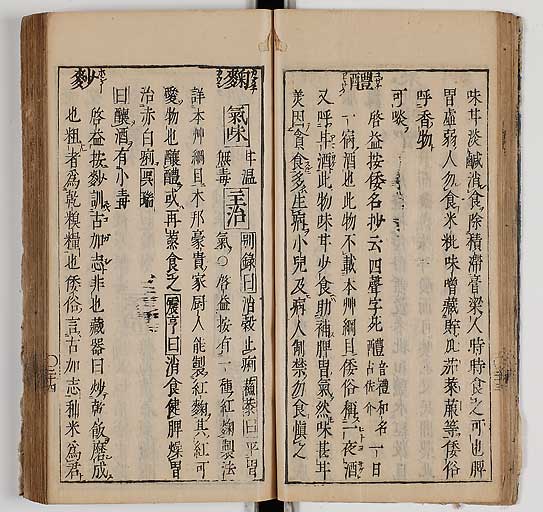 味甘淡鹹消食除積滯膏粱人時時食之可也脾
胃虛弱人勿食米粃味噌藏
茄菜蔌等倭俗
呼香物
可鑒
醴
啓益按倭名抄云四聲字苑醴音禮和名
一日
一宿酒也此物不載本艸綱目倭俗稱一夜酒
又呼甘酒此物味甘少食助補脾胃氣然味甚甘
美因貪食多生病小兒及病人制禁勿食愼之
麴
氣味甘温
無毒主治
別錄曰消穀止痢藏器曰平胃
氣○啓益按有一種紅麴製法
詳本艸綱目本邦豪貴家厨人能製紅麴其紅可
愛物也釀醴或再蒸食之震亨曰消食健脾燥胃
治赤白痢
曰釀酒有小毒
麨
啓益按麨訓古加志非也藏器曰炒乾飯磨成
也粗者爲乾糗糧也倭俗言古加志
米爲君